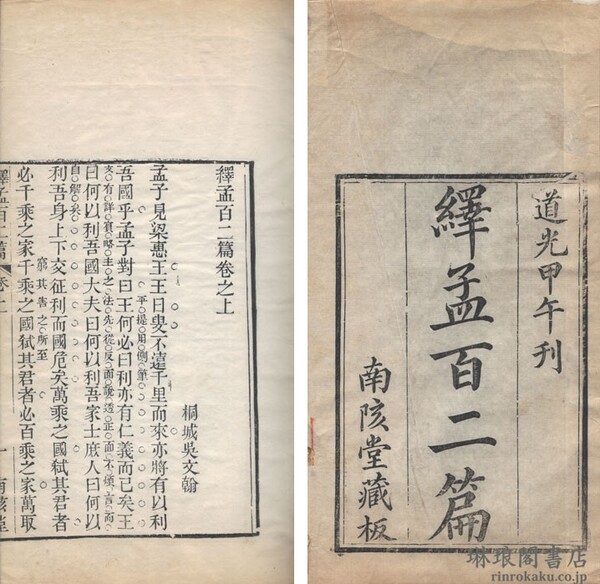 道光甲午刊
繹孟百二篇
南陔堂藏板
繹孟百二篇卷之上
桐城吳文翰
孟子見梁惠王王曰叟不遠千里而來亦將有以利
平提用側筆
吾國乎孟子對曰王何必曰利亦有仁義而已矣王
文有詳賓略主之法先從反面說透正面不煩言而
曰何以利吾國大夫曰何以利吾家士庶人曰何以
自解矣
利吾身上下交征利而國危矣萬乘之國弒其君者
窮其害之所至
必千乘之家千乘之國弒其君者必百乘之家萬取
繹孟百二篇 卷上 一 南陔堂
琳琅閣書店
rinrokaku.co.jp